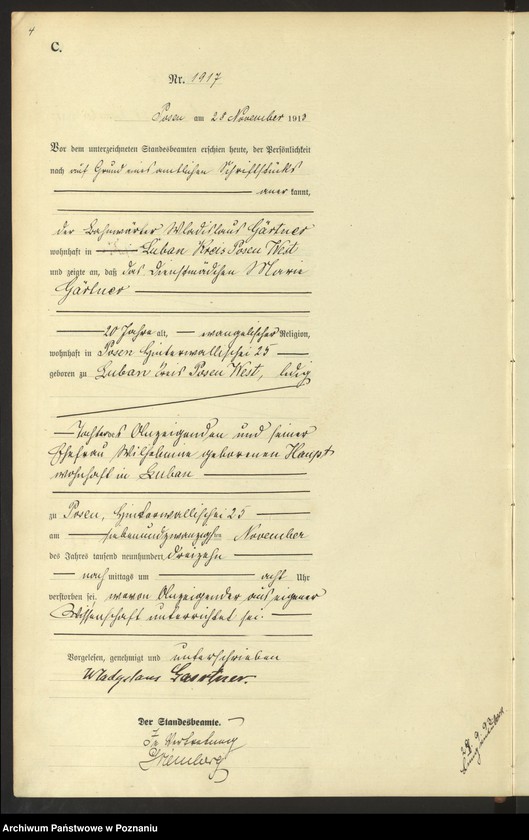 4
C.
Nr. 1917
Posen am 28 November 1913
Vor dem unterzeichneten Standesbeamten erschien heute, der Persönlichkeit
nach auf Grund eines amtlichen Schriftstücks
aner kannt,
der Bahnwärter Wladislaus Gärtner
wohnhaft in Luban Kreis Posen West
und zeigte an, daß das Dienstmädchen Marie
Gärtner
20 Jahre alt, evangelischer Religion,
wohnhaft in Posen Hinterwallischei 25
geboren zu Luban Kreis Posen West, ledig
Tochter des Anzeigenden und seiner
Ehefrau Wilhelmine geborenen Haupt
wohnhaft in Luban
zu Posen, Hinterwallischei 25
am siebenundzwanzigsten November
des Jahres tausend neunhundert dreizehn
nach mittags um acht Uhr
verstorben sei, wovon Anzeigender aus eigener
Wissenschaft unterrichtet sei.
Vorgelesen, genehmigt und unterschrieben
Wladyslaus Gaertner.
Der Standesbeamte.
In Vertretung
Archiwum Państwowe w Poznaniu